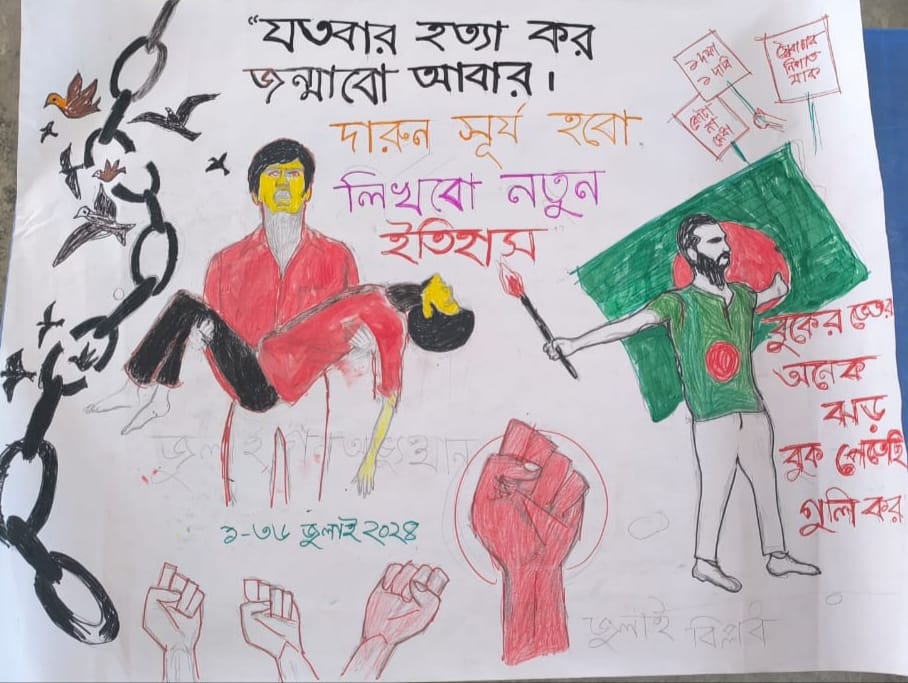 "যতবার হত্যা কর
জন্মাবো আবার।
দারুন সূর্য হবো
লিখবো নতুন
ইতিহাস"
১ দফা
১ দাবি
কোটা
না
মেধা
স্বৈরাচার
নিপাত
যাক
বুকের ভেতর
অনেক
ঝড়
বুক পেতেছি
গুলি কর
জুলাই গণঅভ্যুত্থান
১-৩৬ জুলাই ২০২৪
জুলাই বিপ্লব